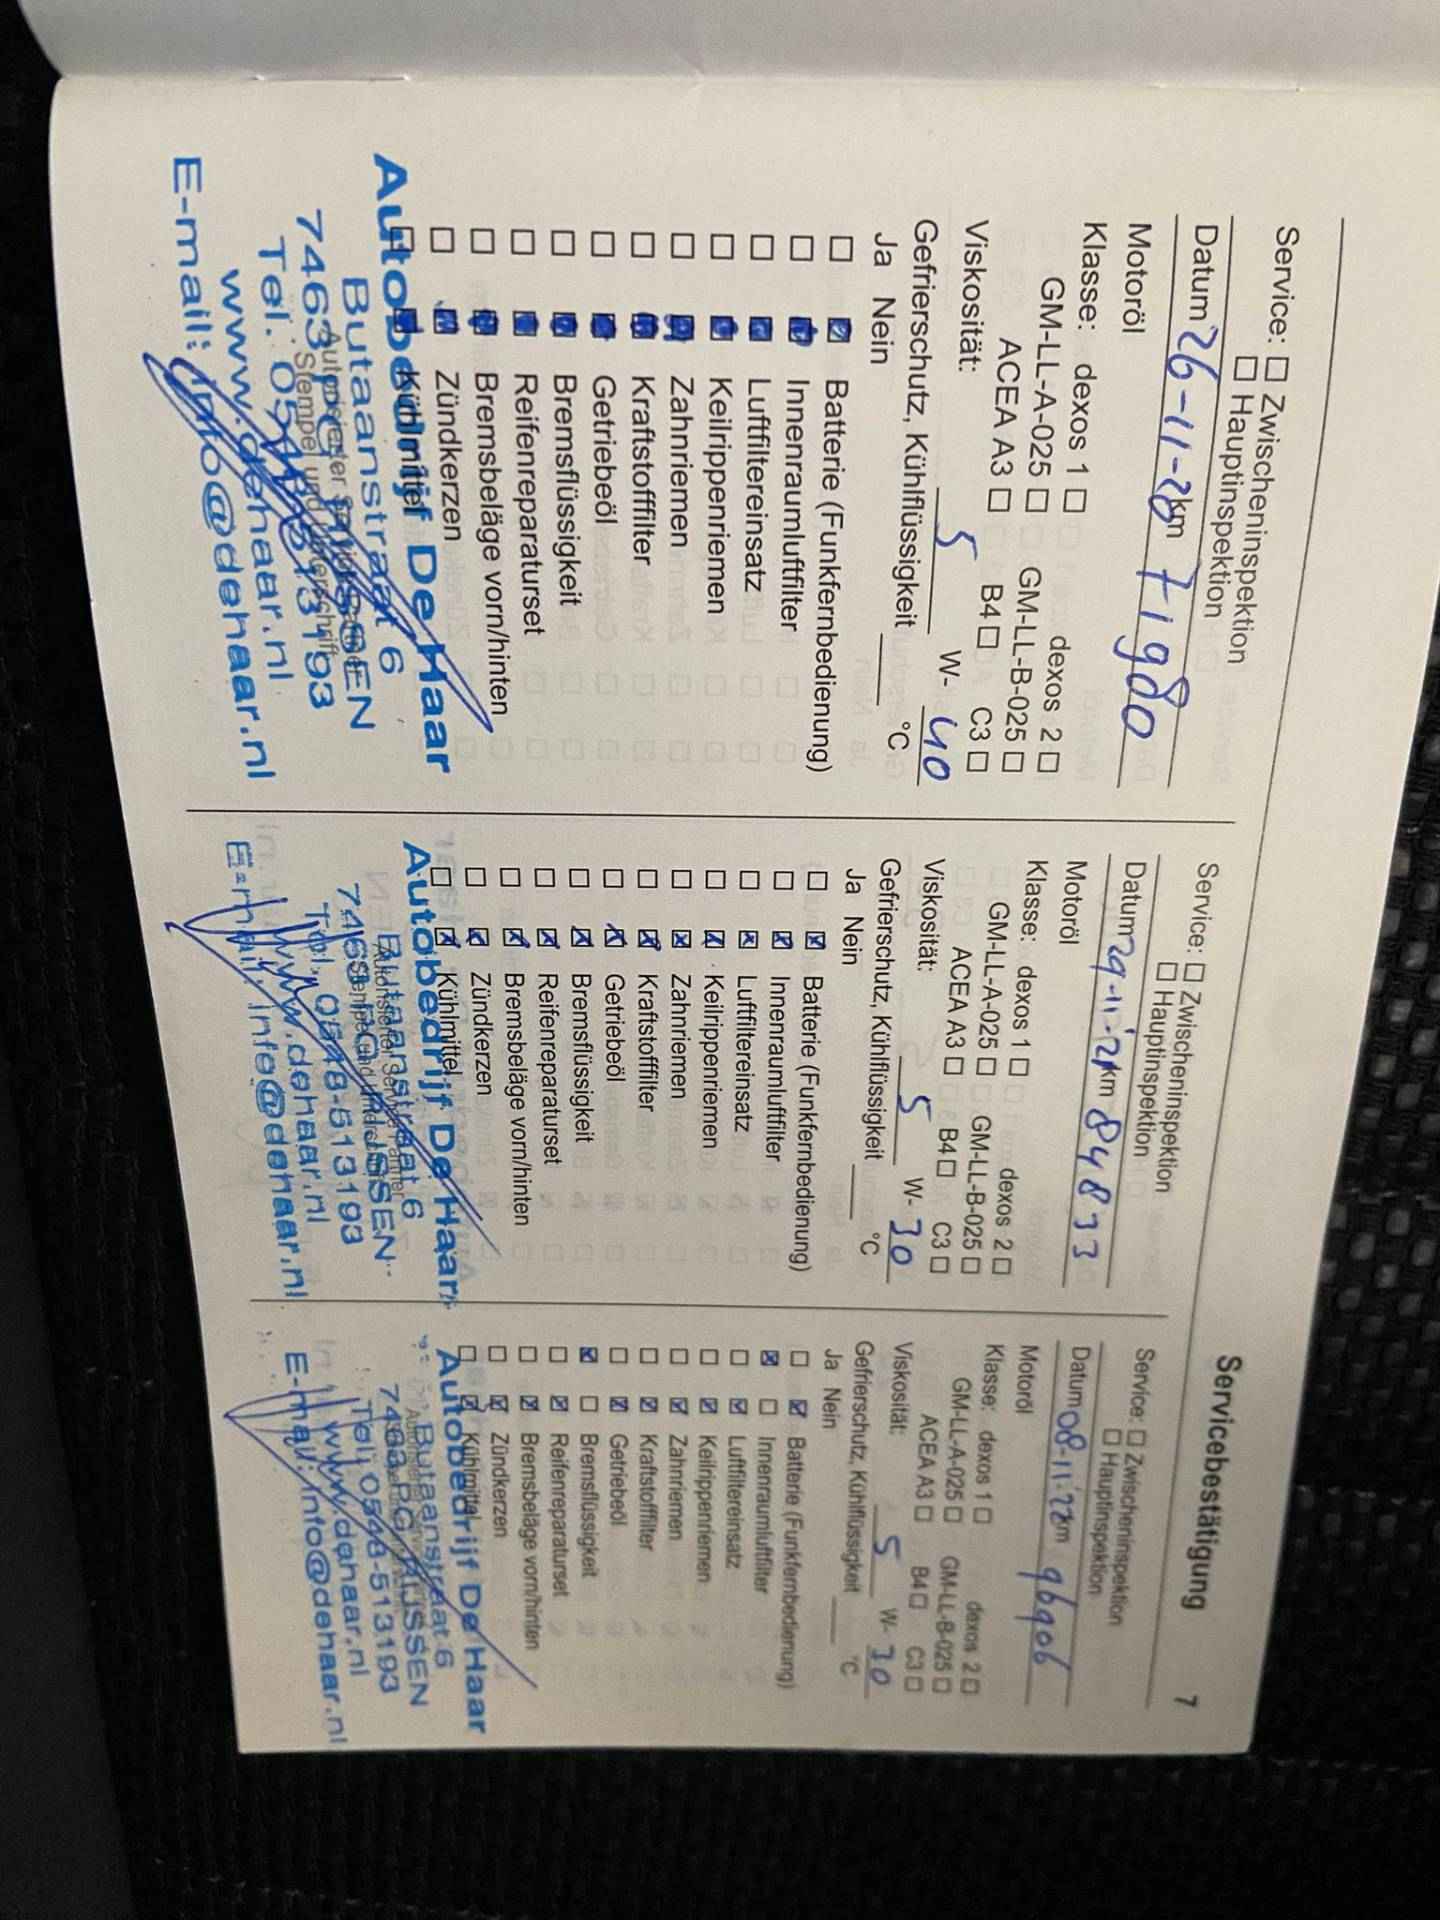 Servicebestätigung 7
Service: ☐ Zwischeninspektion
☐ Hauptinspektion
Datum 26-11-20 km 71980
Motoröl
Klasse: dexos 1 ☐ dexos 2 ☐
GM-LL-A-025 ☐ GM-LL-B-025 ☐
ACEA A3 ☐ B4 ☐ C3 ☐
Viskosität: 5 W- 40
Gefrierschutz, Kühlflüssigkeit ____ °C
Ja Nein
☐ ☒ Batterie (Funkfernbedienung)
☐ ☒ Innenraumluftfilter
☐ ☒ Luftfiltereinsatz
☐ ☒ Keilrippenriemen
☐ ☒ Zahnriemen
☐ ☒ Kraftstofffilter
☐ ☒ Getriebeöl
☐ ☒ Bremsflüssigkeit
☐ ☒ Reifenreparaturset
☐ ☒ Bremsbeläge vorn/hinten
☐ ☒ Zündkerzen
☐ ☒ Kühlmittel
Autorisierter Service Partner
Stempel und Unterschrift
Autobedrijf De Haar
Butaanstraat 6
7463 PG RIJSSEN
Tel. 0548-513193
www.dehaar.nl
E-mail: info@dehaar.nl
Service: ☐ Zwischeninspektion
☐ Hauptinspektion
Datum 29-11-'21 km 84833
Motoröl
Klasse: dexos 1 ☐ dexos 2 ☐
GM-LL-A-025 ☐ GM-LL-B-025 ☐
ACEA A3 ☐ B4 ☐ C3 ☐
Viskosität: 5 W- 30
Gefrierschutz, Kühlflüssigkeit ____ °C
Ja Nein
☐ ☒ Batterie (Funkfernbedienung)
☐ ☒ Innenraumluftfilter
☐ ☒ Luftfiltereinsatz
☐ ☒ Keilrippenriemen
☐ ☒ Zahnriemen
☐ ☒ Kraftstofffilter
☐ ☒ Getriebeöl
☐ ☒ Bremsflüssigkeit
☐ ☒ Reifenreparaturset
☐ ☒ Bremsbeläge vorn/hinten
☐ ☒ Zündkerzen
☐ ☒ Kühlmittel
Autorisierter Service Partner
Stempel und Unterschrift
Autobedrijf De Haar
Butaanstraat 6
7463 PG RIJSSEN
Tel. 0548-513193
www.dehaar.nl
E-mail: info@dehaar.nl
Service: ☐ Zwischeninspektion
☐ Hauptinspektion
Datum 08-11-'22 km 96906
Motoröl
Klasse: dexos 1 ☐ dexos 2 ☐
GM-LL-A-025 ☐ GM-LL-B-025 ☐
ACEA A3 ☐ B4 ☐ C3 ☐
Viskosität: 5 W- 30
Gefrierschutz, Kühlflüssigkeit ____ °C
Ja Nein
☐ ☒ Batterie (Funkfernbedienung)
☒ ☐ Innenraumluftfilter
☐ ☒ Luftfiltereinsatz
☐ ☒ Keilrippenriemen
☐ ☒ Zahnriemen
☐ ☒ Kraftstofffilter
☐ ☒ Getriebeöl
☒ ☐ Bremsflüssigkeit
☐ ☒ Reifenreparaturset
☐ ☒ Bremsbeläge vorn/hinten
☐ ☒ Zündkerzen
☐ ☒ Kühlmittel
Autobedrijf De Haar
Butaanstraat 6
7463 PG RIJSSEN
Tel. 0548-513193
www.dehaar.nl
E-mail: info@dehaar.nl